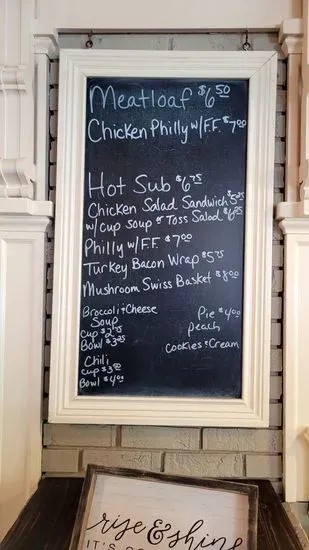 Meatloaf $6.50
Chicken Philly w/F.F. $7.00
Hot Sub $6.75
Chicken Salad Sandwich $5.25
w/cup soup or Toss Salad $6.25
Philly w/F.F. $7.00
Turkey Bacon Wrap $5.75
Mushroom Swiss Basket $8.00
Broccoli & Cheese
Soup
Cup $2.75
Bowl $3.25
Chili
Cup $3.50
Bowl $4.00
Pie $4.00
peach
Cookies & Cream
rise & shine
IT'S